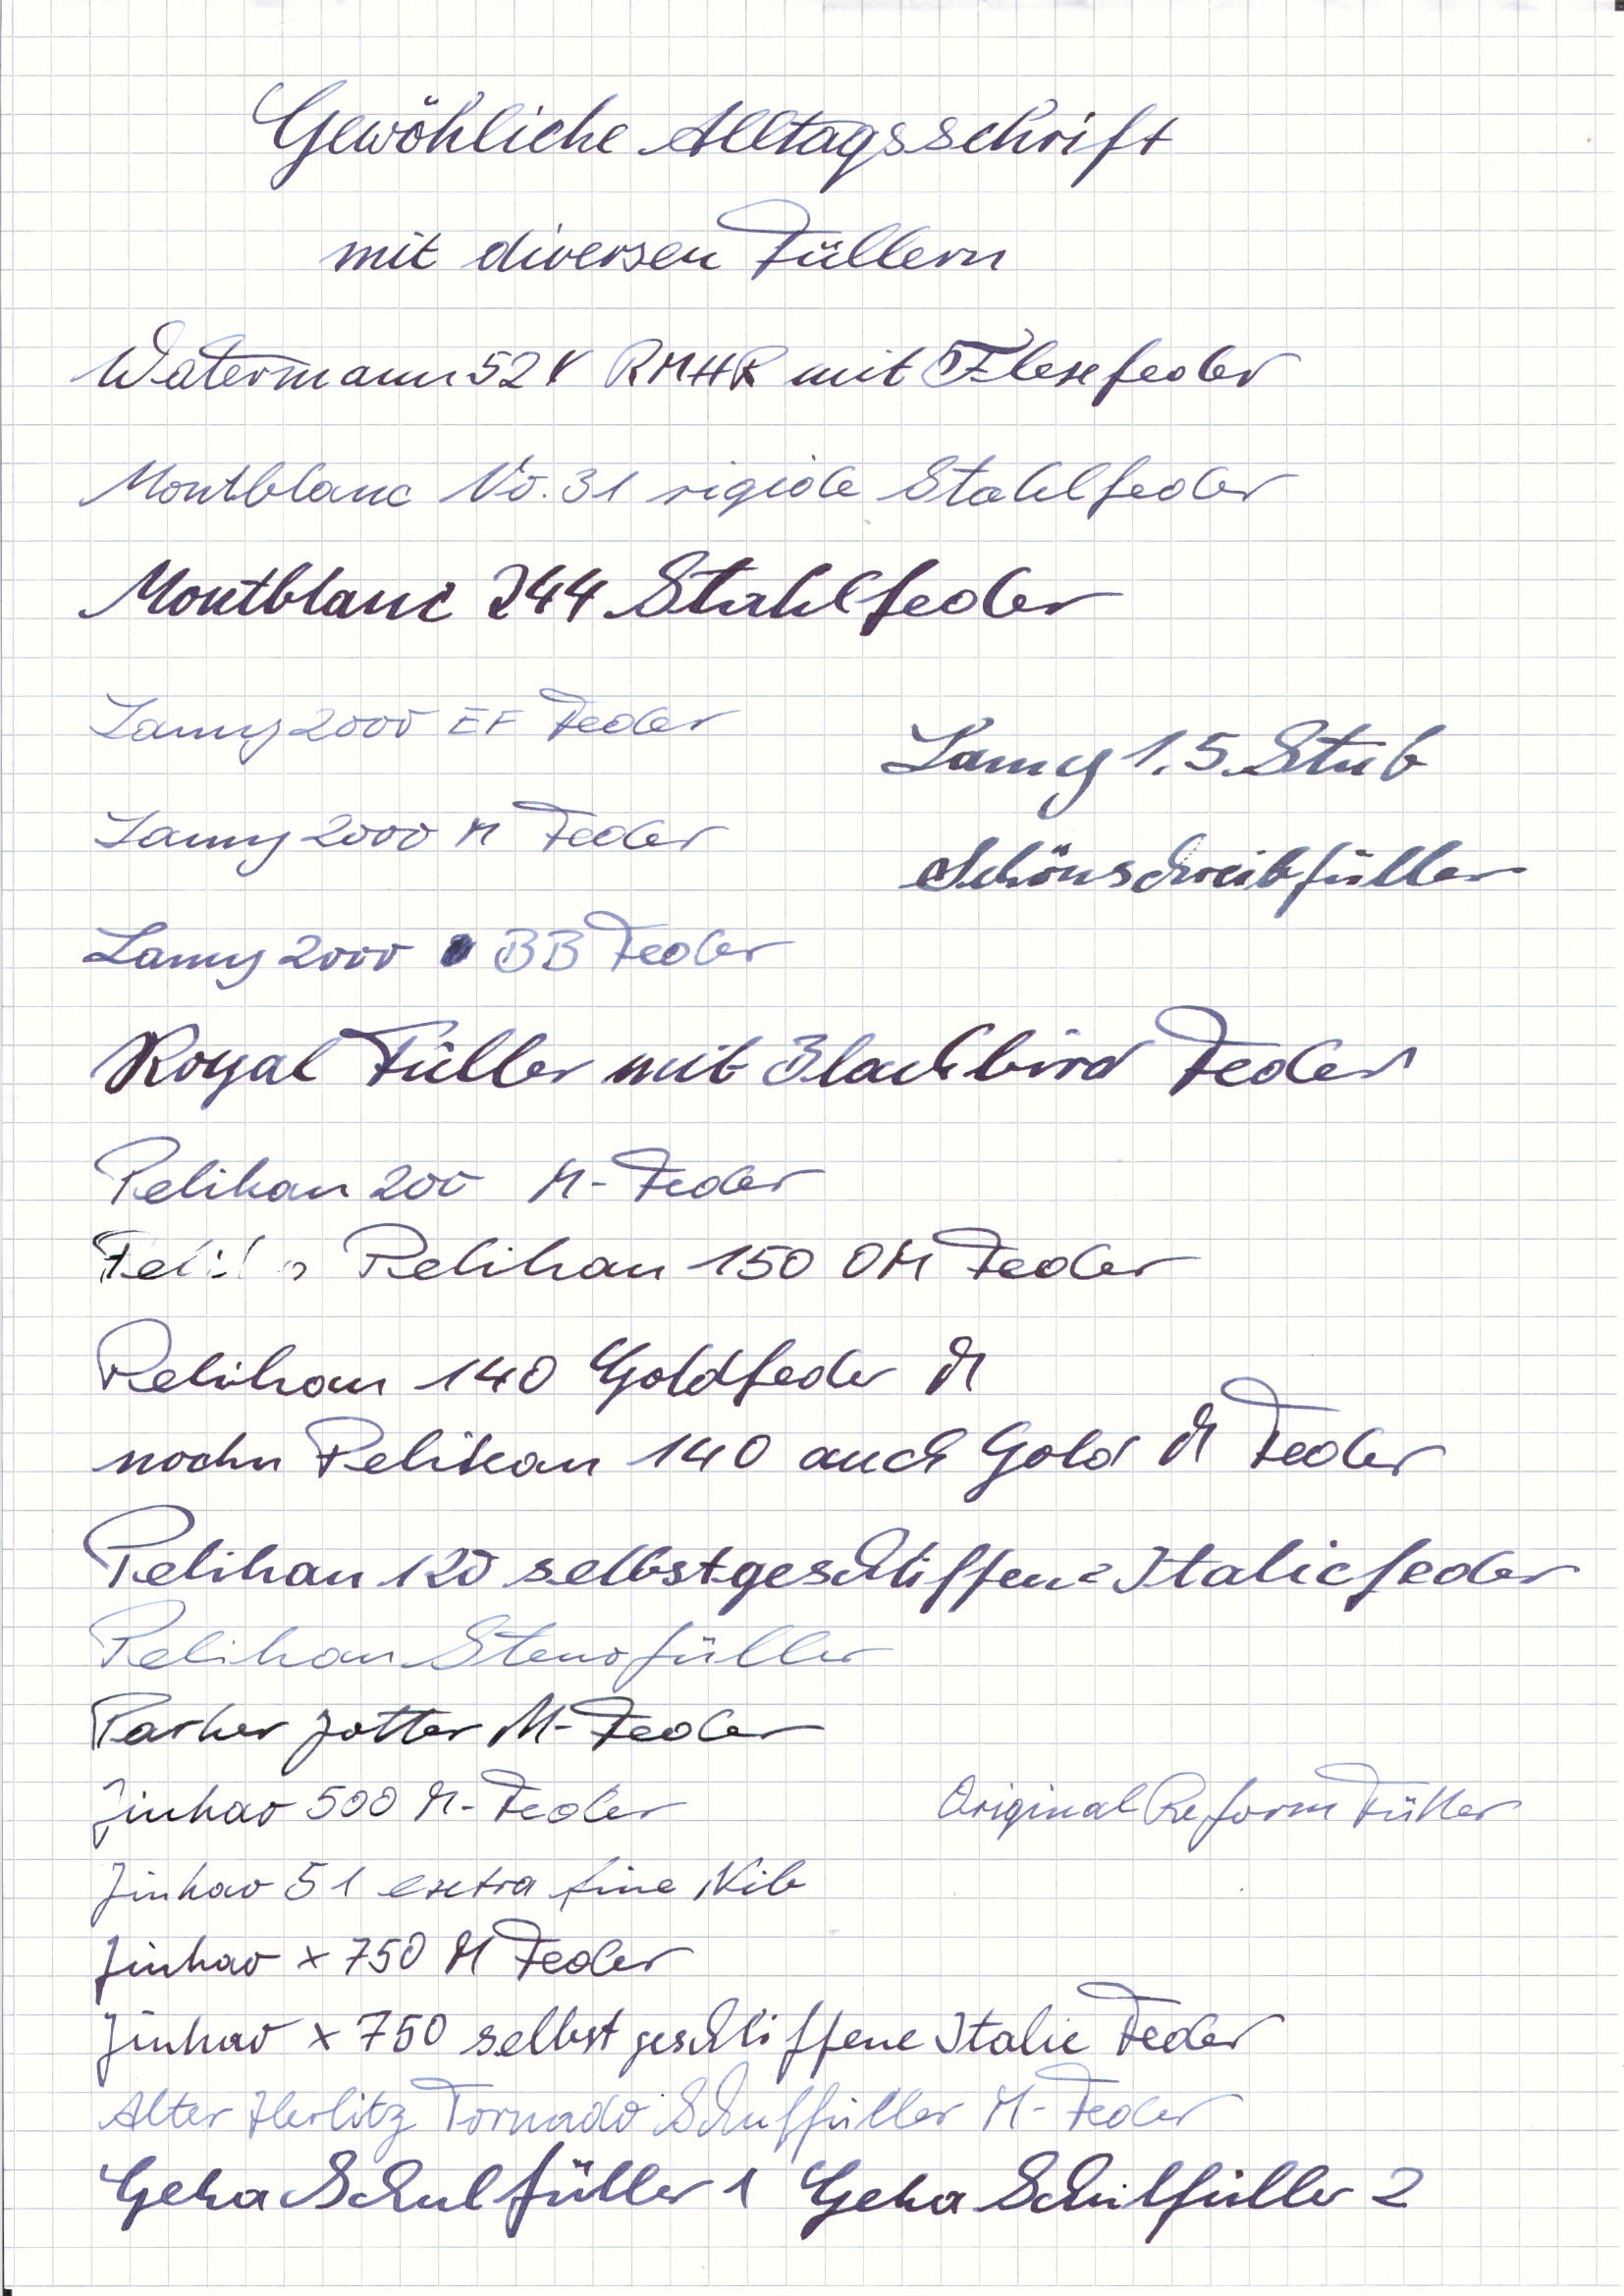 Gewöhliche Alltagsschrift
mit diversen Füllern
Watermann 52 V RMHR mit Flexfeder
Montblanc No. 31 rigide Stahlfeder
Montblanc 244 Stahlfeder
Lamy 2000 EF Feder
Lamy 1.5 Stub
Lamy 2000 M Feder
Schönschreibfüller
Lamy 2000 BB Feder
Royal Füller mit Blackbird Feder
Pelikan 200 M-Feder
Pelikan 150 OM Feder
Pelikan 140 Goldfeder M
nochn Pelikan 140 auch Gold M Feder
Pelikan 120 selbstgeschliffene Italicfeder
Pelikan Stenofüller
Parker Jotter M-Feder
Jinhao 500 M-Feder
Original Reform Füller
Jinhao 51 extra fine Nib
Jinhao x 750 M Feder
Jinhao x 750 selbst geschliffene Italic Feder
Alter Herlitz Tornado Schulfüller M-Feder
Geha Schulfüller 1 Geha Schulfüller 2